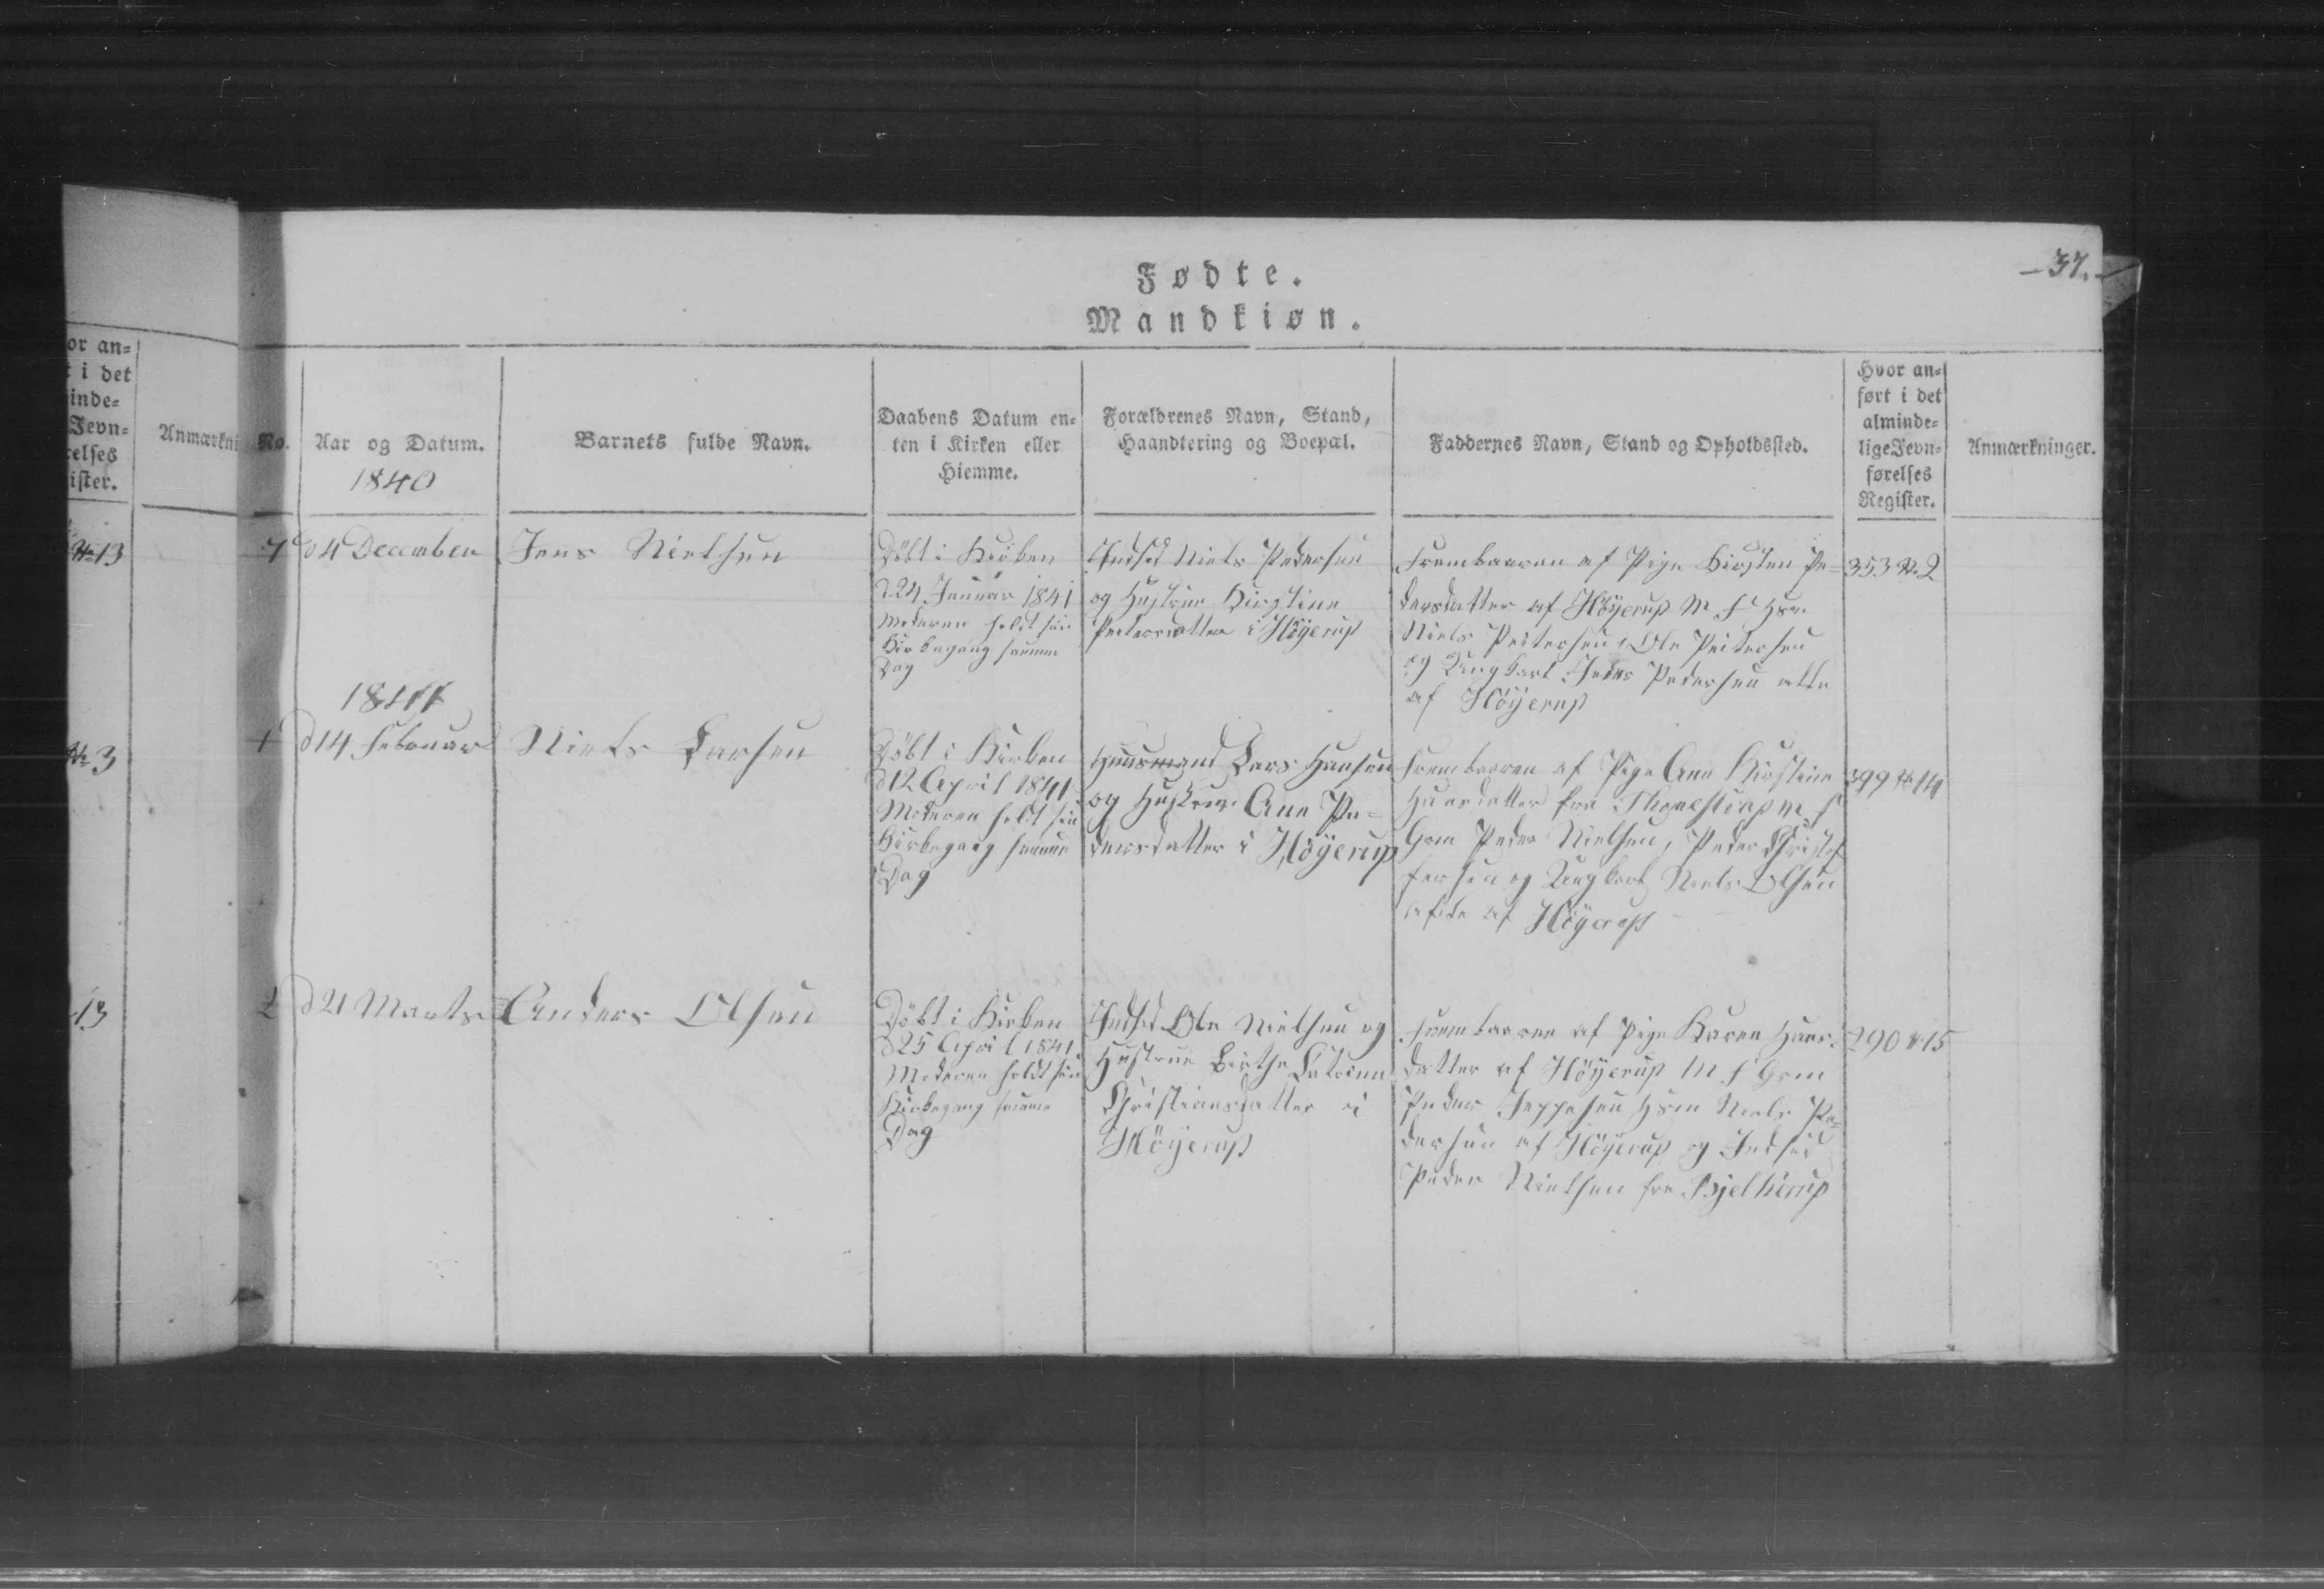 -37.-
Fødte.
Mandkiøn.
or an=
t i det
inde=
Jevn=
relses
ister.
Anmærkni
No.
Aar og Datum.
1840
Barnets fulde Navn.
Daabens Datum en=
ten i Kirken eller
Hiemme.
Forældrenes Navn, Stand,
Haandtering og Boepæl.
Faddernes Navn, Stand og Opholdssted.
Hvor an=
ført i det
alminde=
lige Jevn=
førelses
Register.
Anmærkninger.
No 13
7
d 4 December
Jens Nielsen
Döbt i Kirken
d 24 Januar 1841
Moderen holdt sin
Kirkegang samme
Dag
Indsd Niels Pedersen
og Hustrue Kirstine
Pedersdatter i Höyerup
Frembaaren af Pige Kirsten Pe=
dersdatter af Höyerup M. F Hsm
Niels Peitersen, Ole Peitersen
og Ungkarl Peder Pedersen alle
af Höÿerup
353 No 2
1841
No 3
1
d 14 Februar
Niels Larsen
Döbt i Kirken
d 12 April 1841
Moderen holdt sin
Kirkegang samme
Dag
Huusmand Lars Hansen
og Hustrue Ane Pe=
dersdatter i Höÿerup
Frembaaren af Pige Ane Kirstine
Hansdatter fra M. F
Grm Peder Nielsen, Peder Christof
fersen og Ungkarl Niels Olsen
alle af Höÿerup
399 No 14
13
2
d 21 Marts
Anders Olsen
Döbt i Kirken
d 25 April 1841
Moderen holdt sin
Kirkegang samme
Dag
Indsd Ole Nielsen og
Hustrue Birthe Catrine
Christiansdatter i
Höÿerup
Frembaaren af Pige Karen Hans
datter af Höÿerup M F Grm
Peder Jeppesen Hsm Niels Pe=
dersen af Höÿerup og Indsid
Peder Nielsen fra Bjelkerup
290 No 15